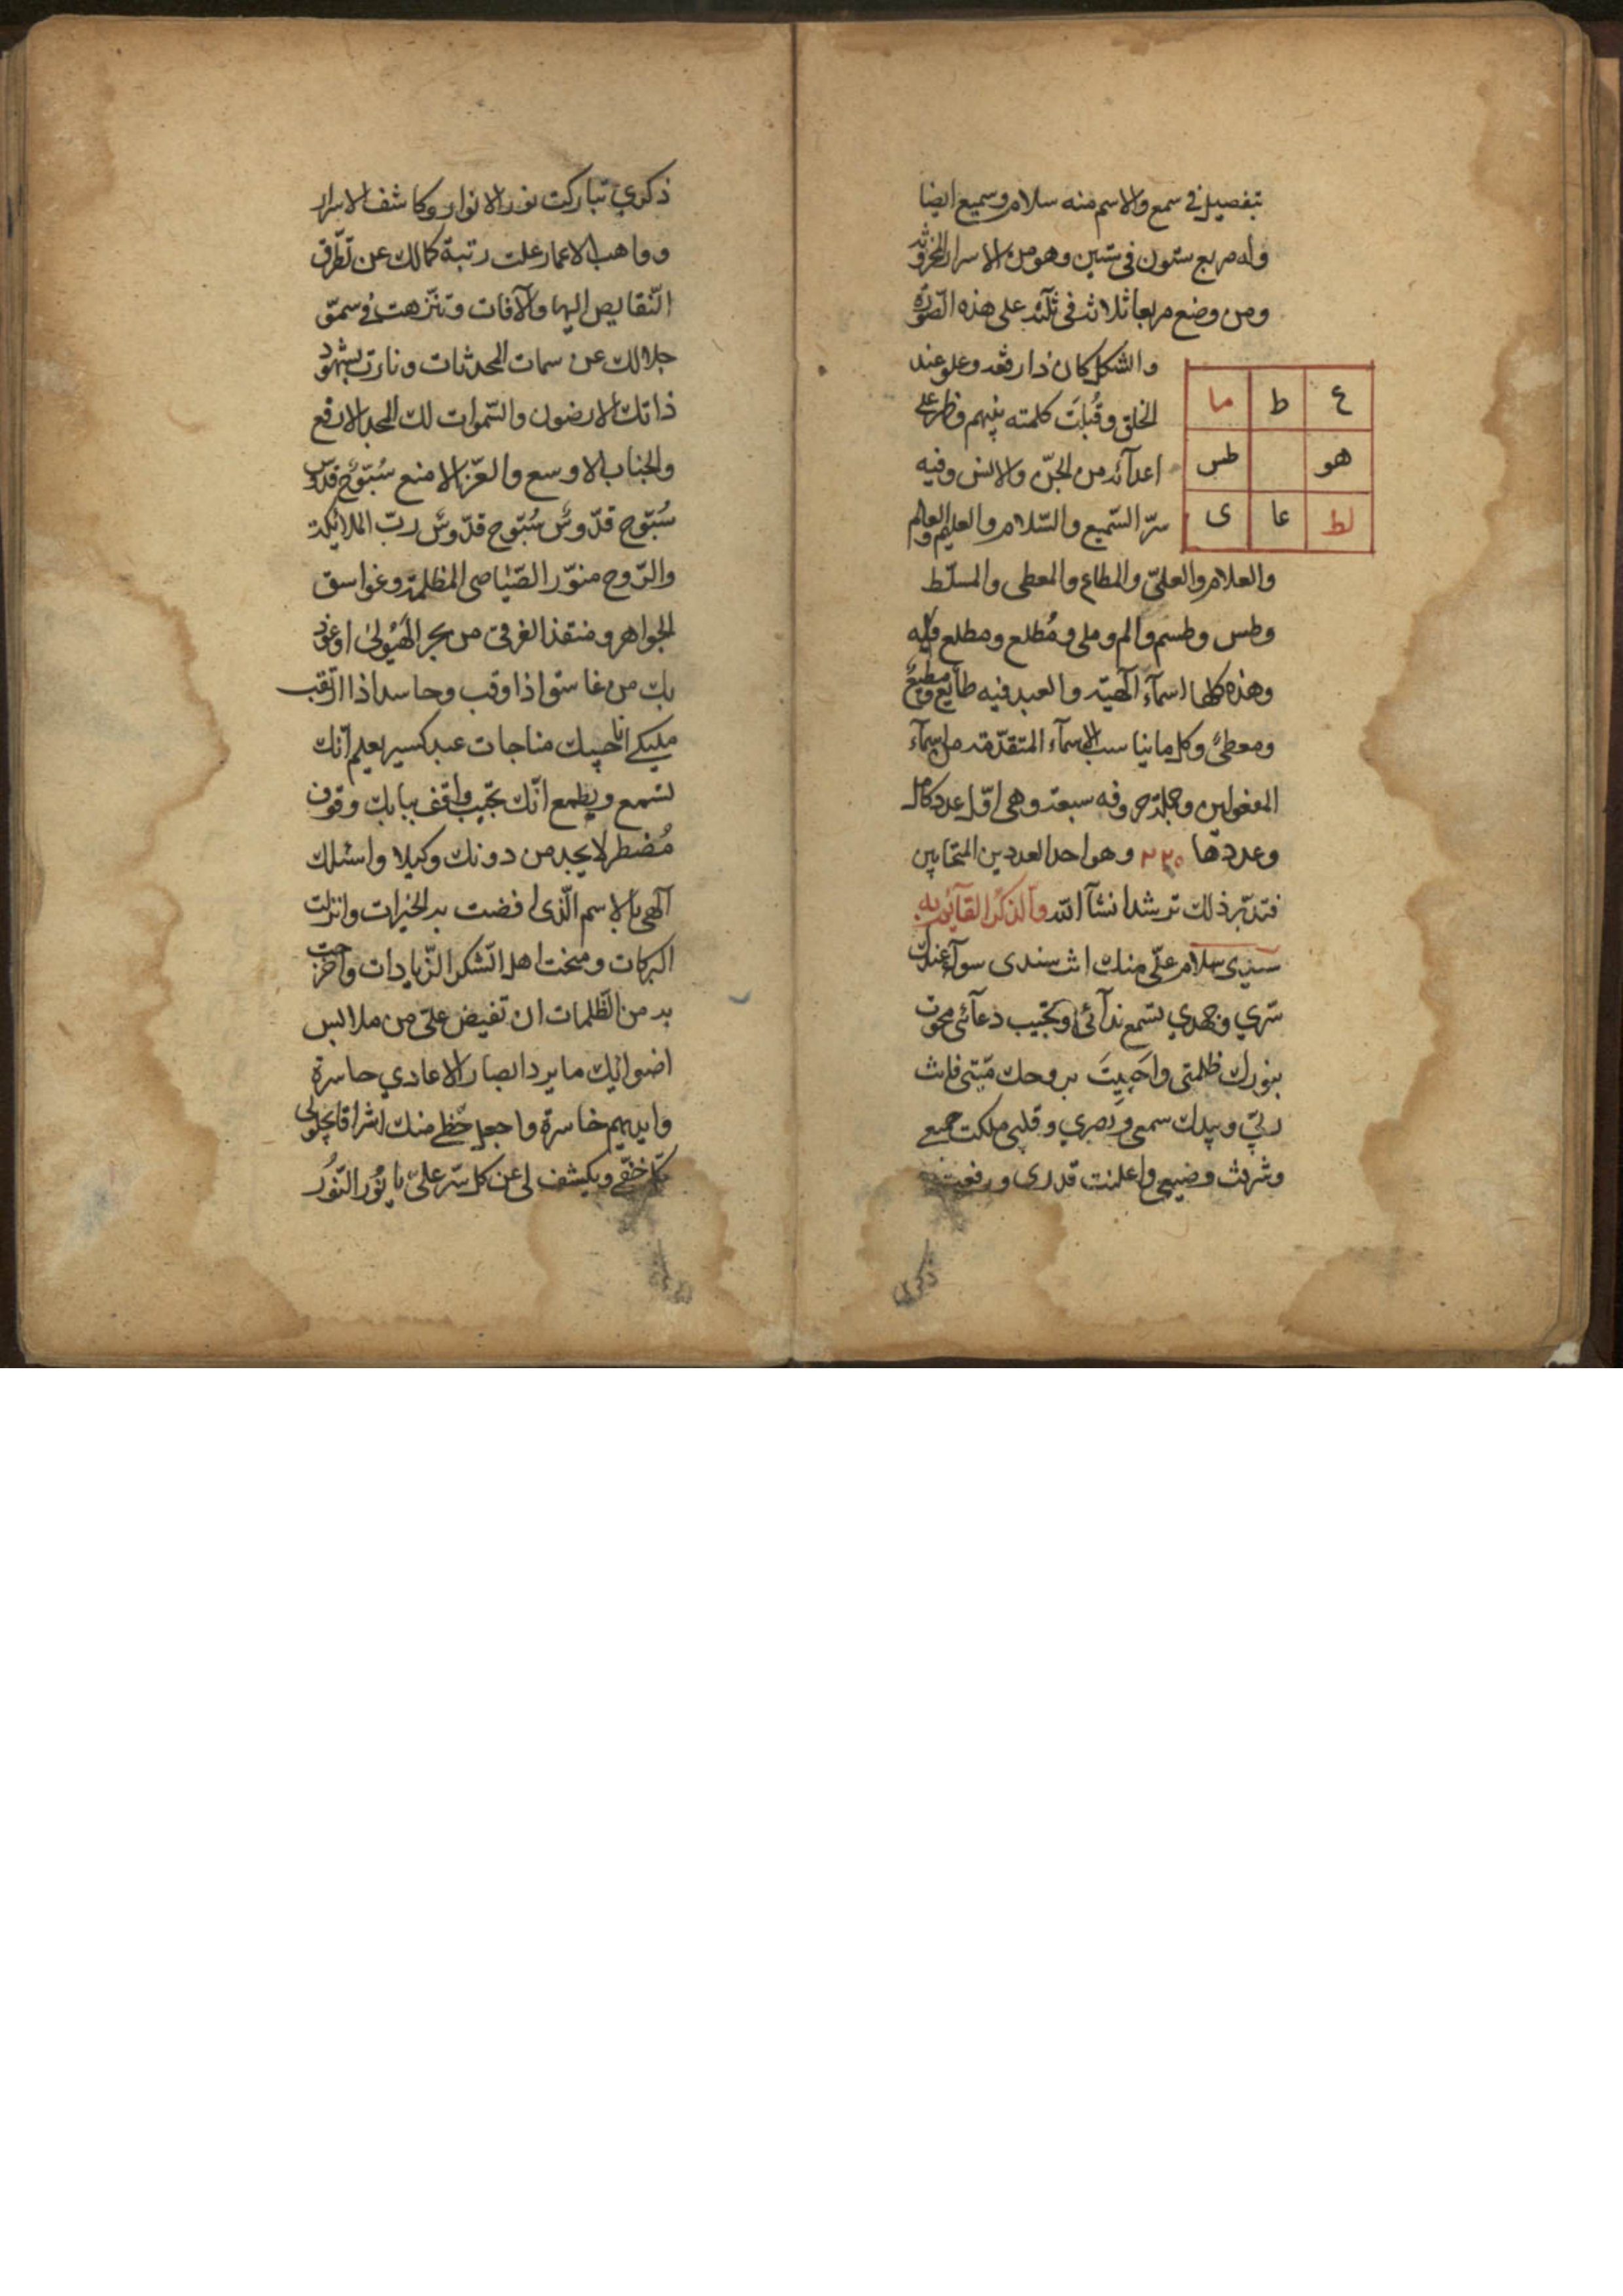 بتفصيل في سمع والاسم منه سلام وسميع ايضا
وله مربع ستون في ستين وهو من الاسرار المخزونه
ومن وضع مربعا ثلاثة في ثلثة على هذه الصّورة
والشكل كان ذا رفعة وعلو عند
الخلق وقُبلَت كلمته بينهم وظهر على
اعدآئه من الجنّ والانس وفيه
سرّ السّميع والسّلام والعليم والعالم
ع ط ما
هو طس
لط عا ى
والعلام والعلىّ والمطاع والمعطى والمسلّط
وطس وطسم والم وملى ومُطلع ومطلع
وهذه كلها اسمآء الٓهيّه والعبد فيه طآيع ومطيع
ومعطىً وكل ما يناسب الاسمآء المتقدّمة من اسمآء
المفعولين وجملة حروفه سبعة وهى اوّل عدد كامل
وعددها ٢٢٠ وهو احد العددين المتحابين
فتدبّر ذلك ترشد انشآ الله والذكر القآئم به
سيدى سلام علىّ منك انت سندى سوآء عندك
سّري وجهدي تسمع ندآئى وتجيب دعآئى محوت
بنورك ظلمتى واَحييتَ بروحك مّيتى فانت
ربّي وبيدك سمعى وبصري وقلبى ملكت جميع
وشرفت وضيعى واعلنت قدرى ورفعت
ذكري
ذكري تباركت نور الانوار وكاشف الاسرار
وواهب الاعمار علت رتبة كمالك عن تطرّق
النّقايص اليها والآفات وتنزّهت في سموّ
جلالك عن سمات المحدثات ونارت بشهود
ذاتك الارضون والسّموات لك المجد الارفع
والجناب الاوسع والعّز الامنع سُبّوحٌ قدّوس
سُبّوح قدّوسٌ سُبّوح قدّوسٌ ربّ الملائكة
والرّوح منوّر الصّياصى المظلمة وغواسق
الجواهر ومنقذ الغرقى من بحر الهَيُولىٰ اعوذ
بك من غاسق اذا وقب وحاسد اذا ارتقب
مليكي اناجيك مناجات عبد كسير يعلم انّك
تسمع ويطمع انّك تجيب واقف ببابك وقوف
مُضطر لا يجد من دونك وكيلا واسئلك
الٓهي بالاسم الّذى افضت به الخيرات وانزلت
البركات ومنحت اهل الشكر الزّيادات واخرجت
به من الظّلمات ان تفيض علىّ من ملابس
اضوائك ما يرد ابصار الاعادي حاسرة
وايديهم خاسرة واجعل حّظي منك اشراقا يجلو لى
كلّ خفّي ويكشف لى عن كل سّر علىّ يا نُور النّورُ